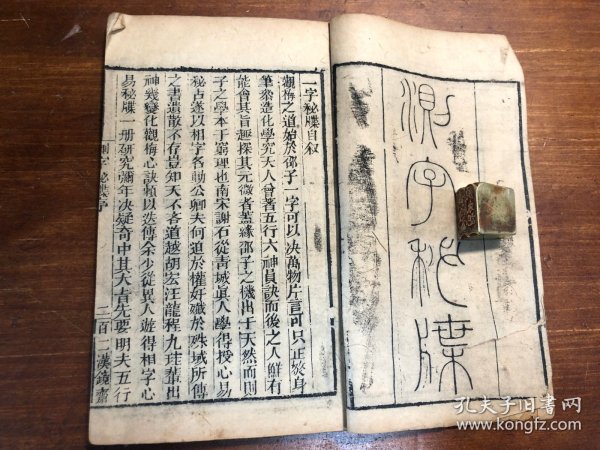 測字秘牒
一字秘牒自叙
觀梅之道始於邵子一字可以決萬物片言可只正於身
筆參造化學究天人曾著五行六神員訣而後之人鮮有
能會其旨趣探其元微者蓋緣邵子之機出于天然而則
子之學本于窮理也南宋謝石從青城眞人學得授心易
秘占遂以相字各動公卿夫何迫於權奸殲於殊域所傳
之書遺散不存豈知天不吝道越胡宏汪龍程九珪輩出
神幾變化觀梅心訣頼以迭傳余少從異人遊得相字心
易秘牒一册研究彌年决疑奇中其大者先要明夫五行
測字秘牒序
一
二百二漢鏡齋
孔夫子旧书网
www.kongfz.com